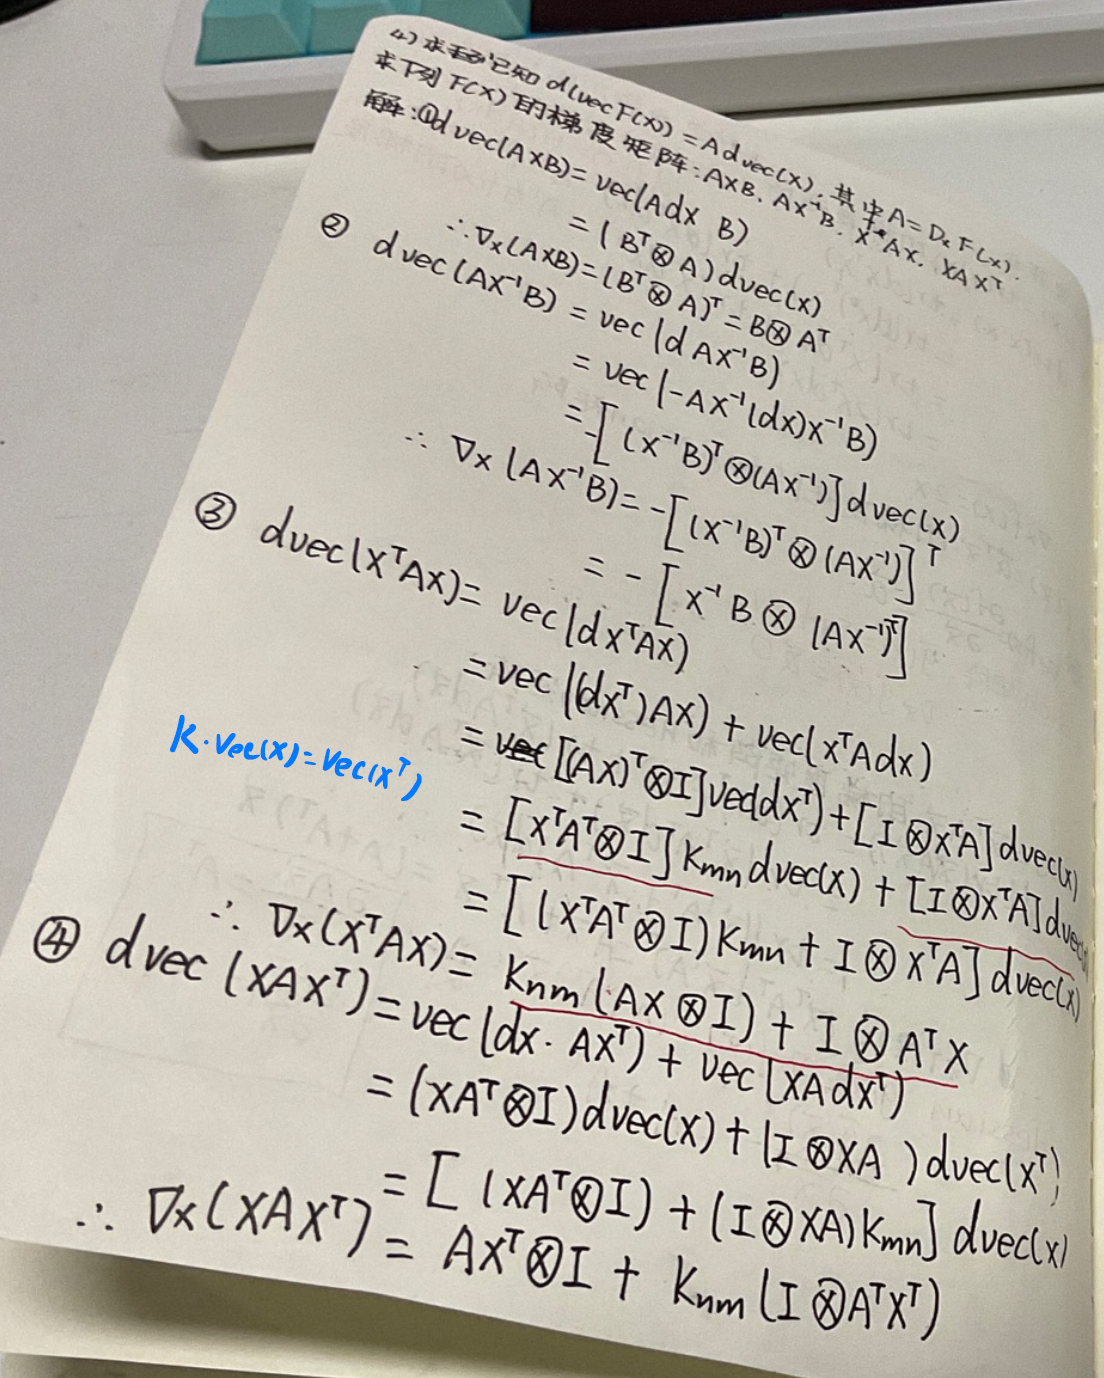 4)求 已知 d(vec F(X)) = A d vec(X), 其中 A = Dx F(X).
求下列 F(X)的梯度矩阵: AXB、AX⁻¹B、XᵀAX、XAXᵀ
解:① d vec(AXB) = vec(AdX B)
= (Bᵀ⊗A) d vec(X)
∴ ∇x(AXB) = (Bᵀ⊗A)ᵀ = B⊗Aᵀ
② d vec(AX⁻¹B) = vec(d AX⁻¹B)
= vec(-AX⁻¹(dX)X⁻¹B)
= -[(X⁻¹B)ᵀ⊗(AX⁻¹)] d vec(X)
∴ ∇x(AX⁻¹B) = -[(X⁻¹B)ᵀ⊗(AX⁻¹)]ᵀ
= -[X⁻¹B⊗(AX⁻¹)ᵀ]
③ d vec(XᵀAX) = vec(dXᵀAX)
= vec((dXᵀ)AX) + vec(XᵀAdX)
= [(AX)ᵀ⊗I] vec(dXᵀ) + [I⊗XᵀA] d vec(X)
K·vec(X)=vec(Xᵀ)
= [XᵀAᵀ⊗I] Kmn d vec(X) + [I⊗XᵀA] d vec(X)
= [(XᵀAᵀ⊗I) Kmn + I⊗XᵀA] d vec(X)
∴ ∇x(XᵀAX) = Knm(AX⊗I) + I⊗AᵀX
④ d vec(XAXᵀ) = vec(dX·AXᵀ) + vec(XAdXᵀ)
= (XAᵀ⊗I) d vec(X) + (I⊗XA) d vec(Xᵀ)
= [(XAᵀ⊗I) + (I⊗XA) Kmn] d vec(X)
∴ ∇x(XAXᵀ) = AXᵀ⊗I + Knm(I⊗AᵀXᵀ)